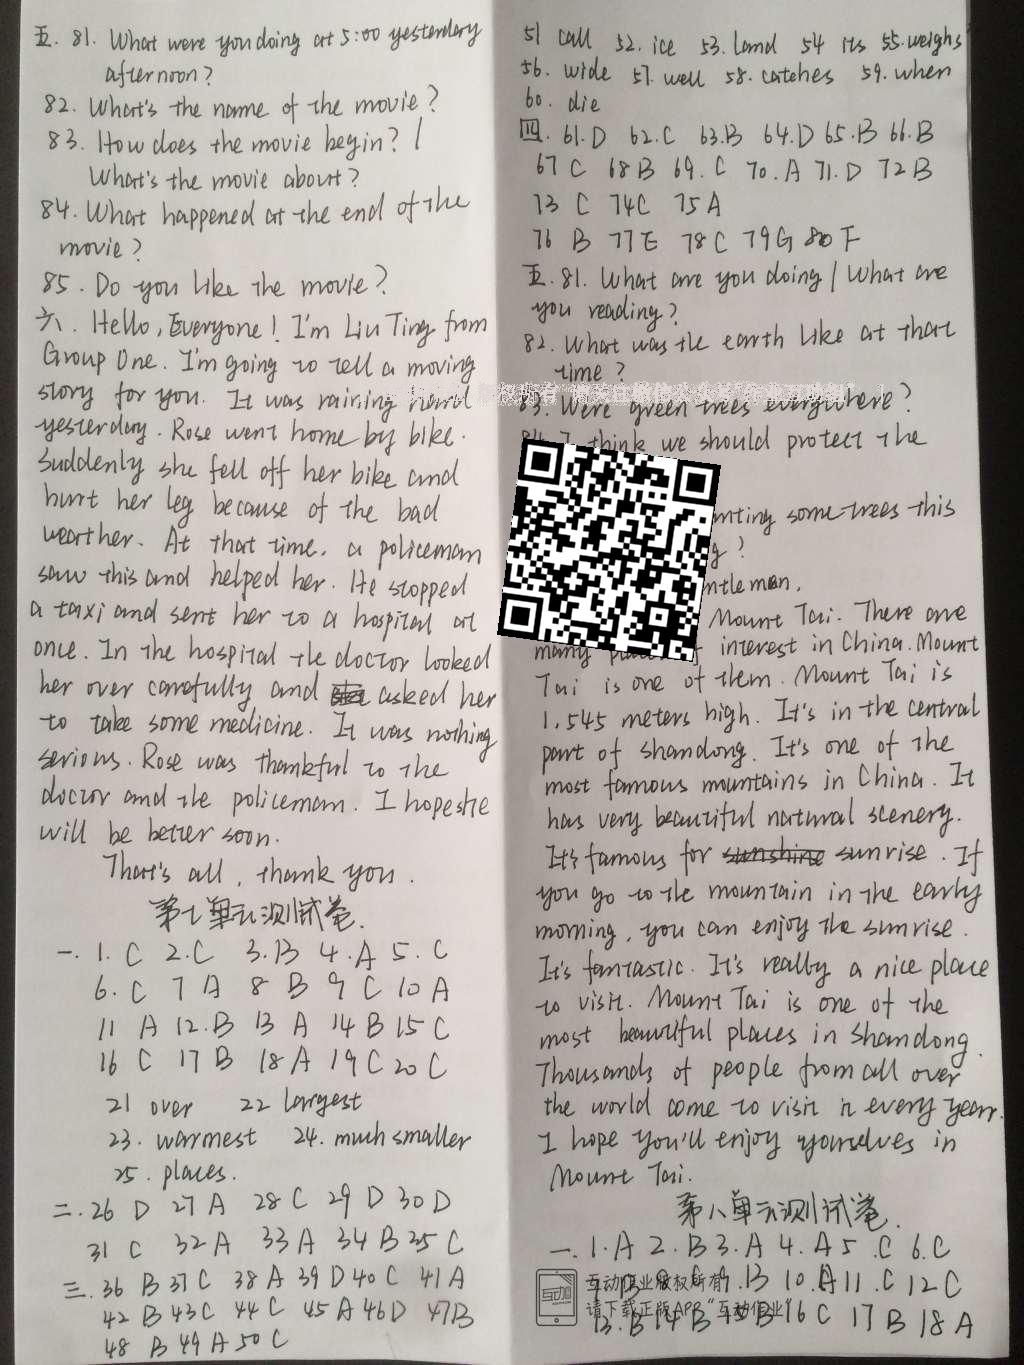 五. 81. What were you doing at 5:00 yesterday
afternoon?
82. What's the name of the movie?
83. How does the movie begin? /
What's the movie about?
84. What happened at the end of the
movie?
85. Do you like the movie?
六. Hello, Everyone! I'm Liu Ting from
Group One. I'm going to tell a moving
story for you. It was raining hard
yesterday. Rose went home by bike.
Suddenly she fell off her bike and
hurt her leg because of the bad
weather. At that time, a policeman
saw this and helped her. He stopped
a taxi and sent her to a hospital at
once. In the hospital the doctor looked
her over carefully and asked her
to take some medicine. It was nothing
serious. Rose was thankful to the
doctor and the policeman. I hope she
will be better soon.
That's all, thank you.
第七单元测试卷.
一. 1. C 2. C 3. B 4. A 5. C
6. C 7 A 8 B 9 C 10 A
11 A 12. B 13 A 14 B 15 C
16 C 17 B 18 A 19 C 20 C
21 over 22 largest
23. warmest 24. much smaller
25. places.
二. 26 D 27 A 28 C 29 D 30 D
31 C 32 A 33 A 34 B 35 C
三. 36 B 37 C 38 A 39 D 40 C 41 A
42 B 43 C 44 C 45 A 46 D 47 B
48 B 49 A 50 C
51 call 52. ice 53. land 54 its 55. weighs
56. wide 57. well 58. catches 59. when
60. die
四. 61. D 62. C 63. B 64. D 65. B 66. B
67 C 68 B 69. C 70. A 71. D 72 B
73 C 74 C 75 A
76 B 77 E 78 C 79 G 80 F
五. 81. What are you doing / What are
you reading?
82. What was the earth like at that
time?
83. Were green trees everywhere?
84. I think we should protect the
some trees this
?
Mount Tai. There are
many interest in China. Mount
Tai is one of them. Mount Tai is
1,545 meters high. It's in the central
part of Shandong. It's one of the
most famous mountains in China. It
has very beautiful natural scenery.
It's famous for sunshine sunrise. If
you go to the mountain in the early
morning, you can enjoy the sunrise.
It's fantastic. It's really a nice place
to visit. Mount Tai is one of the
most beautiful places in Shandong.
Thousands of people from all over
the world come to visit it every year.
I hope you'll enjoy yourselves in
Mount Tai.
第八单元测试卷.
一. 1. A 2. B 3. A 4. A 5. C 6. C
9. B 10. A 11. C 12 C
互动作业版权所有
请下载正版APP“互动作业”
13. B 14 B 15 B 16 C 17 B 18 A